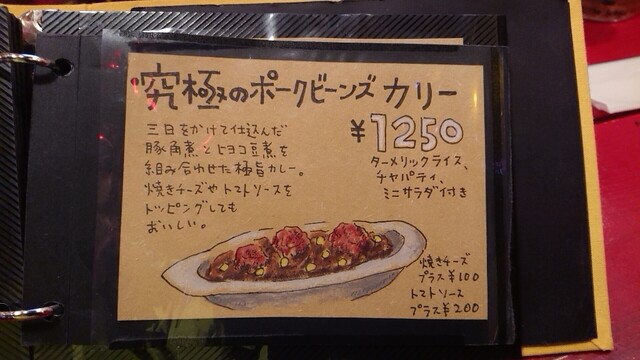 究極のポークビーンズカリー
¥1250
三日をかけて仕込んだ
豚角煮とヒヨコ豆煮を
組み合わせた極旨カレー。
焼きチーズやトマトソースを
トッピングしても
おいしい。
ターメリックライス、
チャパティ、
ミニサラダ付き
焼きチーズ
プラス¥100
トマトソース
プラス¥200